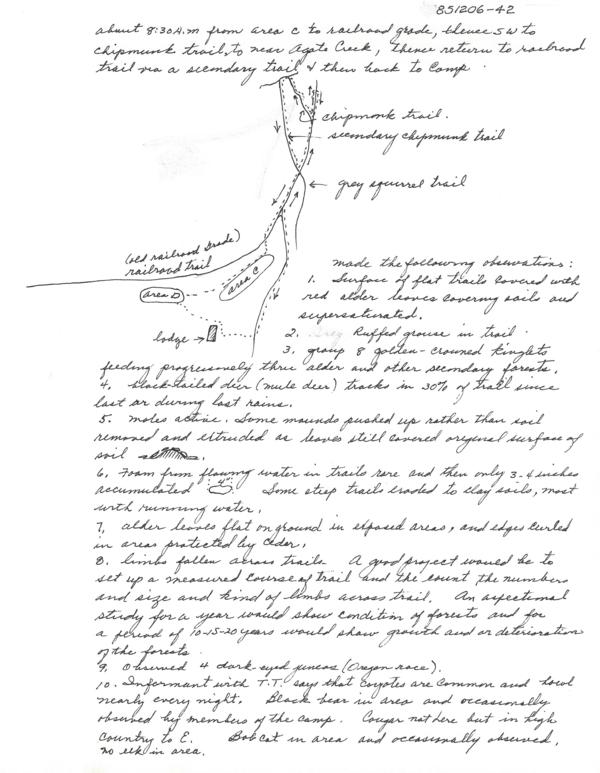 851206-42
about 8:30 A.m from area C to railroad grade, thence SW to
chipmunk trail, to near Agate Creek, thence return to railroad
trail via a secondary trail & then back to Camp.
chipmonk trail.
secondary chipmunk trail
grey squirrel trail
(old railroad grade)
railroad trail
area C
area D
lodge
made the following obsevations:
1. Surface of flat trails covered with
red alder leaves covering soils and
supersaturated.
2. Ruffed grouse in trail.
3. group 8 golden-crowned kinglets
feeding progressively thru alder and other secondary forests.
4. black-tailed deer (mule deer) tracks in 30% of trail since
last or during last rains.
5. moles active. Some mounds pushed up rather than soil
removed and extruded as leaves still covered original surface of
soil
6. Foam from flowing water in trails rare and then only 3-4 inches
accumulated 4" Some steep trails eroded to clay soils, most
with running water.
7. alder leaves flat on ground in exposed areas, and edges curled
in areas protected by cedar.
8. limbs fallen across trails. A good project would be to
set up a measured course of trail and the count the numbers
and size and kind of limbs across trail. An aspectional
study for a year would show condition of forests and for
a period of 10-15-20 years would show growth and or deterioration
of the forests.
9. Observed 4 dark-eyed juncos (Oregon race).
10. Informant with T.T. says that coyotes are common and howl
nearly every night. Black bear in area and occasionally
observed by members of the camp. Cougar not here but in high
country to E. Bobcat in area and occasionally observed,
no elk in area.